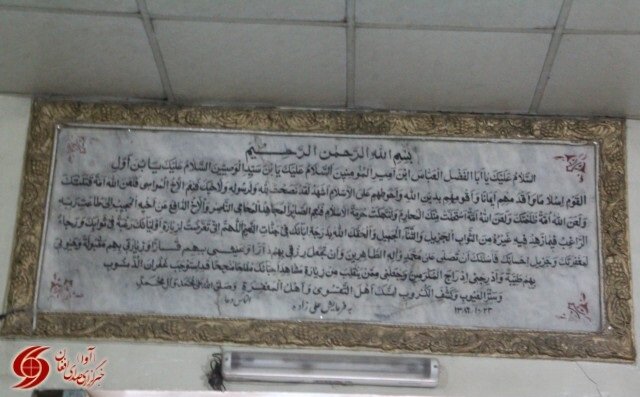 بِسْمِ اللهِ الرَّحْمٰنِ الرَّحِيْمِ
اَلسَّلامُ عَلَيْكَ يا اَبَا الْفَضْلِ الْعَبّاسَ ابْنَ اَميرِ الْمُؤمِنينَ اَلسَّلامُ عَلَيْكَ يَا بْنَ سَيِّدِ الْوَصِيّينَ اَلسَّلامُ عَلَيْكَ يَا بْنَ اَوَّلِ
الْقَوْمِ اِسْلامًا وَاَقْدَمِهِمْ ايمانًا وَاَقْوَمِهِمْ بِدينِ اللهِ وَاَحْوَطِهِمْ عَلَى الْاِسْلامِ اَشْهَدُ لَقَدْ نَصَحْتَ لِلّهِ وَلِرَسُولِهِ وَلِاَخيكَ فَنِعْمَ الْاَخُ الْمُواسى فَلَعَنَ اللهُ اُمَّةً قَتَلَتْكَ
وَلَعَنَ اللهُ اُمَّةً ظَلَمَتْكَ وَلَعَنَ اللهُ اُمَّةً اسْتَحَلَّتْ مِنْكَ الْمَحارِمَ وَانْتَهَكَتْ حُرْمَةَ الْاِسْلامِ فَنِعْمَ الصّابِرُ الْمُجاهِدُ الْمُحامِى النّاصِرُ وَالْاَخُ الدّافِعُ عَنْ اَخيهِ الْمُجيبُ اِلى طاعَةِ رَبِّهِ
الرّاغِبُ فيما زَهِدَ فيهِ غَيْرُهُ مِنَ الثَّوابِ الْجَزيلِ وَالثَّناءِ الْجَميلِ وَاَلْحَقَكَ اللهُ بِدَرَجَةِ ابائِكَ فى جَنّاتِ النَّعيمِ اَللّهُمَّ اِنّى تَعَرَّضْتُ لِزِيارَةِ اَوْلِيائِكَ رَغْبَةً فى ثَوابِكَ وَرَجاءً
لِمَغْفِرَتِكَ وَجَزيلِ اِحْسانِكَ فَاَسْئَلُكَ اَنْ تُصَلِّىَ عَلى مُحَمَّدٍ وَالِهِ الطّاهِرينَ وَاَنْ تَجْعَلَ رِزْقى بِهِمْ دارًّا وَعَيْشى بِهِمْ قارًّا وَزِيارَتى بِهِمْ مَقْبُولَةً وَحَيوتى
بِهِمْ طَيِّبَةً وَاَدْرِجْنى اِدْراجَ الْمُكْرَمينَ وَاجْعَلْنى مِمَّنْ يَنْقَلِبُ مِنْ زِيارَةِ مَشاهِدِ اَحِبّائِكَ مُفْلِحًا مُنْجِحًا قَدِ اسْتَوْجَبَ غُفْرانَ الذُّنُوبِ
وَسَتْرَ الْعُيُوبِ وَكَشْفَ الْكُرُوبِ اِنَّكَ اَهْلُ التَّقْوى وَاَهْلُ الْمَغْفِرَةِ وَصَلَّى اللهُ عَلى مُحَمَّدٍ وَالِ مُحَمَّدٍ
به فرمایش علی زاده
التماس دعا
آوا
خبرگزاری صدای افغان